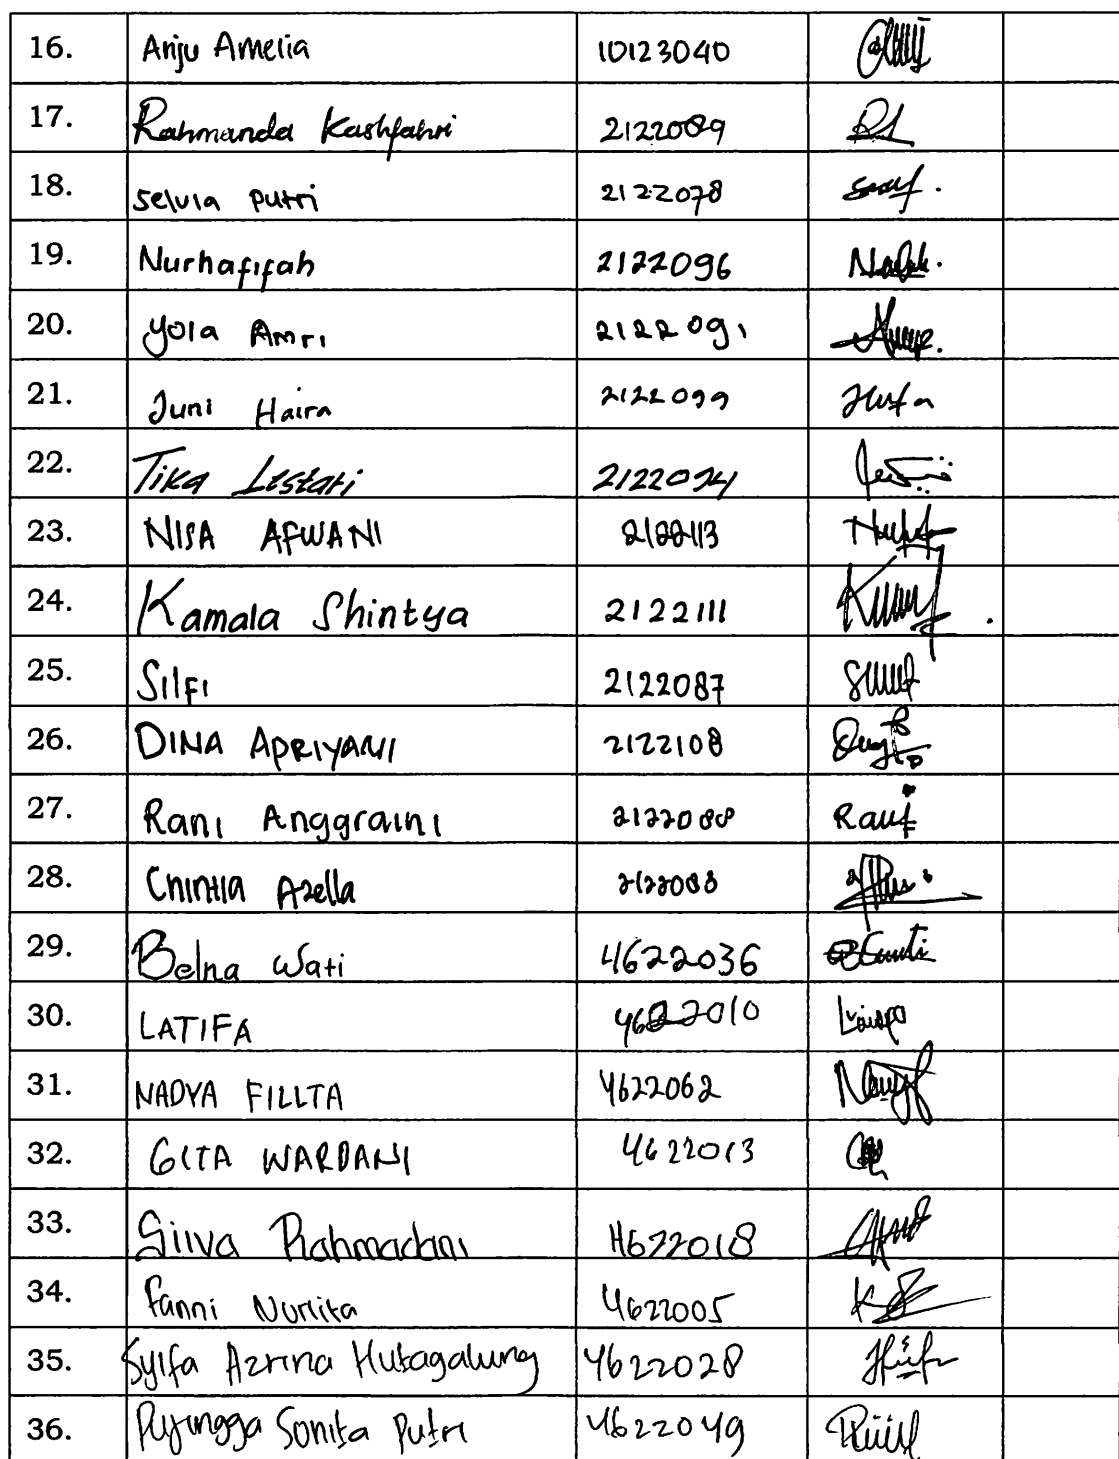 16. Anju Amelia 10123040
17. Rahmanda Kashfahri 2122089
18. Selvia Putri 2122078
19. Nurhafifah 2122096
20. Yola Amri 2122091
21. Juni Haira 2122099
22. Tika Lestari 2122094
23. NISA AFWANI 2122113
24. Kamala Shintya 2122111
25. Silfi 2122087
26. DINA APRIYANI 2122108
27. Rani Anggraini 2122088
28. Chintia Azella 2122088
29. Belna Wati 4622036
30. LATIFA 4622010
31. NADYA FILLTA 4622062
32. GITA WARDANI 4622013
33. Silva Rahmadani 4622018
34. Fanni Nurlita 4622005
35. Syifa Azrina Hutagalung 4622028
36. Pujangga Sonita Putri 4622049